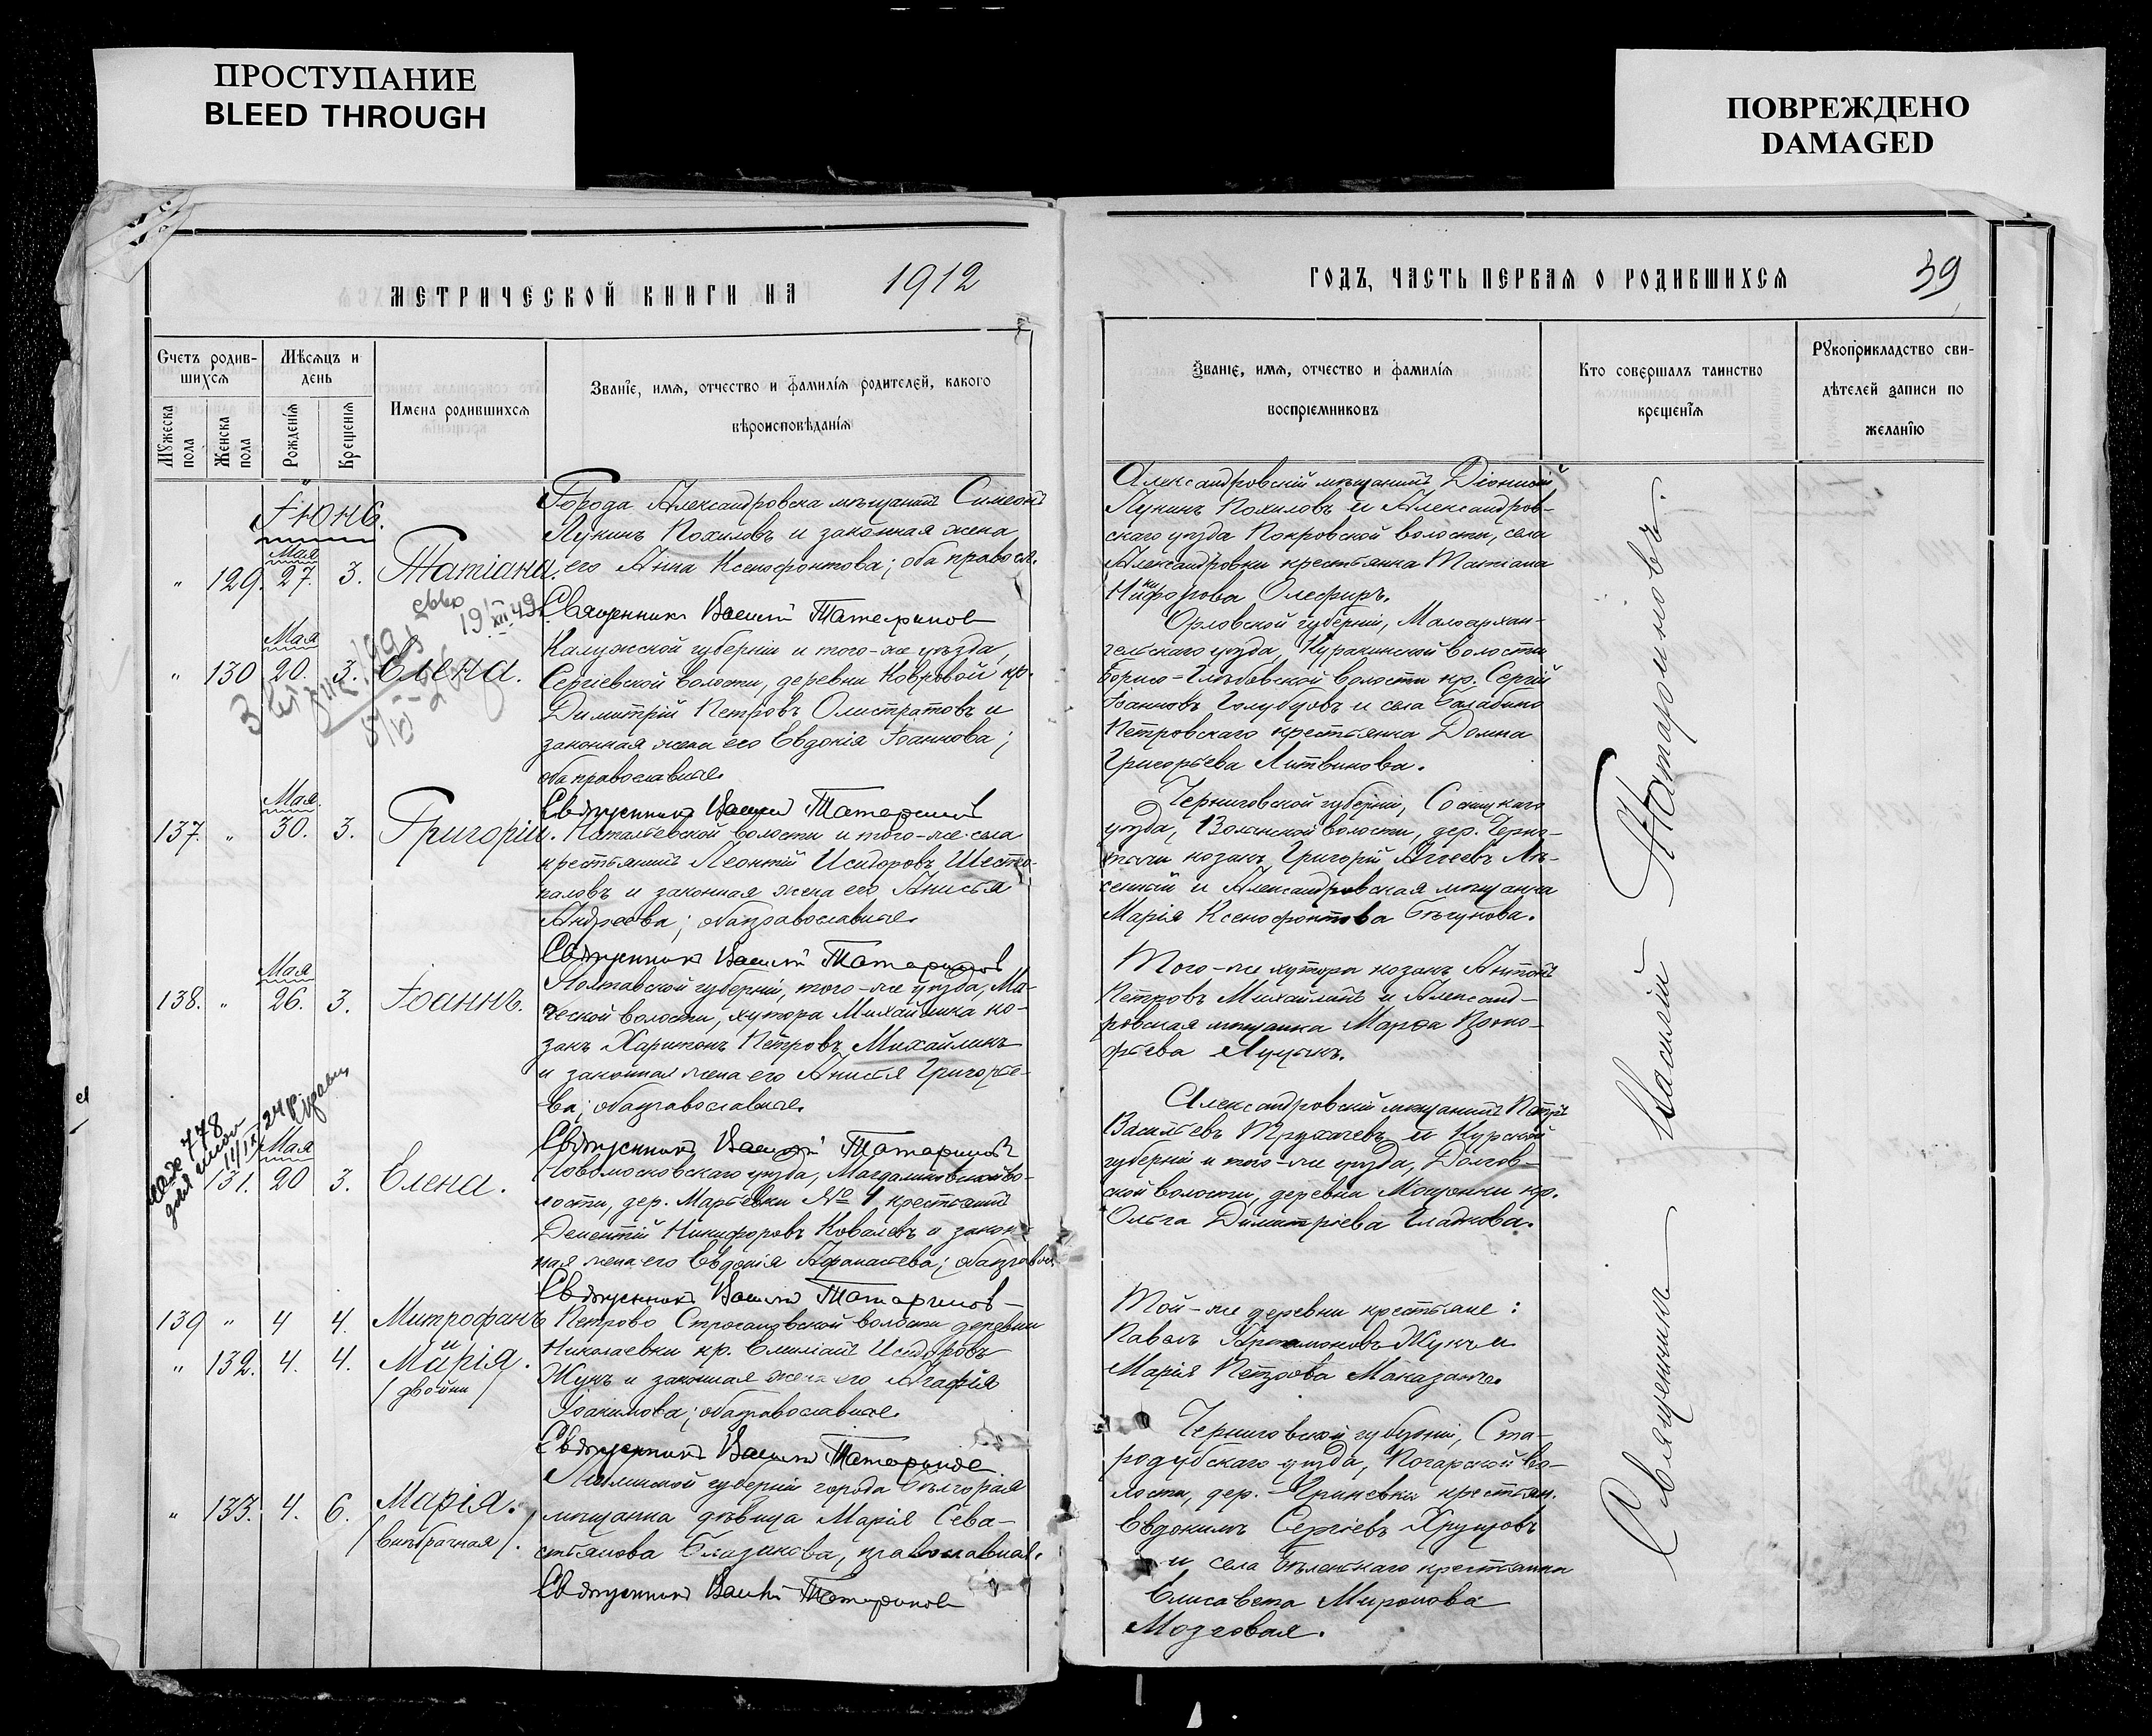 ПРОСТУПАНИЕ
BLEED THROUGH
ПОВРЕЖДЕНО
DAMAGED
МЕТРИЧЕСКОЙ КНИГИ НА 1912
ГОДЪ, ЧАСТЬ ПЕРВАЯ О РОДИВШИХСЯ
39
Счетъ родив-
шихся
Мѣсяцъ и
день
Мужеска пола
Женска пола
Рожденія
Крещенія
Имена родившихся
Званіе, имя, отчество и фамилія родителей, какого
вѣроисповѣданія
Званіе, имя, отчество и фамилія
воспріемниковъ
Кто совершалъ таинство
крещенія
Рукоприкладство сви-
дѣтелей записи по
желанію
Іюнь.
Мая
" 129. 27. 3. Татіана.
Города Александровска мѣщанинъ Симеонъ
Лукинъ Похиловъ и законная жена
его Анна Ксенофонтова; оба правосл.
Священникъ Василій Татариновъ
Александровскій мѣщанинъ Діонисій
Лукинъ Похиловъ и Александров-
скаго уѣзда Покровской волости, села
Александровки крестьянка Татіана
Никифорова Олефиръ.
Мая
" 130 20. 3. Елена.
Калужской губерніи и того-же уѣзда,
Сергіевской волости, деревни Ковровой кр.
Димитрій Петровъ Олистратовъ и
законная жена его Евдокія Іоаннова;
оба православные.
Священникъ Василій Татариновъ
Орловской губерніи, Малоархан-
гельскаго уѣзда, Куракинской волости
Борисо-Глѣбовской волости кр. Сергій
Іоанновъ Голубцовъ и села Балабино
Петровскаго крестьянка Домна
Григорьева Литвинова.
Мая.
137. " 30. 3. Григорій.
Натальевской волости и того-же села
крестьянинъ Леонтій Исидоровъ Шесто-
паловъ и законная жена его Анисья
Андреева; оба православные.
Священникъ Василій Татариновъ
Черниговской губерніи, Сосницкаго
уѣзда, Волынской волости, дер. Черно-
козакъ Григорій
и Александровская мѣщанка
Марія Ксенофонтова Бѣгунова.
Мая
138. " 26. 3. Іоаннъ.
Полтавской губерніи, того-же уѣзда, Ма-
ческой волости, хутора Михайлика ко-
закъ Харитонъ Петровъ Михайликъ
и законная жена его Анисья Григорье-
ва; оба православные.
Священникъ Василій Татариновъ
Того-же хутора козакъ Антонъ
Петровъ Михайликъ и Александ-
ровская мѣщанка Марфа Проко-
фьева
Мая
131. 20 3. Елена.
Новомосковскаго уѣзда, Магдалиновской во-
лости, дер. Марьевки № 4 крестьянинъ
Дементій Никифоровъ Ковалевъ и закон-
ная жена его Евдокія Афанасьева; оба правосл.
Священникъ Василій Татариновъ
Александровскій мѣщанинъ Петръ
Васильевъ Трухачевъ и Курской
губерніи и того-же уѣзда, Долгов-
ской волости, деревни кр.
Ольга Димитріева Гладкова.
139 " 4 4. Митрофанъ
и
" 132. 4. 4. Марія.
/двойни/
Петрово деревни
Николаевки кр. Емиліанъ Исидоровъ
Жукъ и законная жена его Агафія
Іоакимова; оба православные.
Священникъ Василій Татариновъ
Той-же деревни крестьяне:
Павелъ Артамоновъ Жукъ и
Марія Петрова
" 133. 4. 6. Марія.
/внѣбрачная/.
губерніи города Бѣлгорая
мѣщанка дѣвица Марія Сева-
стьянова православная.
Священникъ Василій Татариновъ
Черниговской губерніи, Ста-
родубскаго уѣзда, Погарской во-
лости, дер. Гриневки крестьян.
Евдокимъ Сергіевъ Хрущовъ
и села Бѣленькаго крестьянка
Елисавета Миронова
Мозговая.
Священникъ Василій Татариновъ.